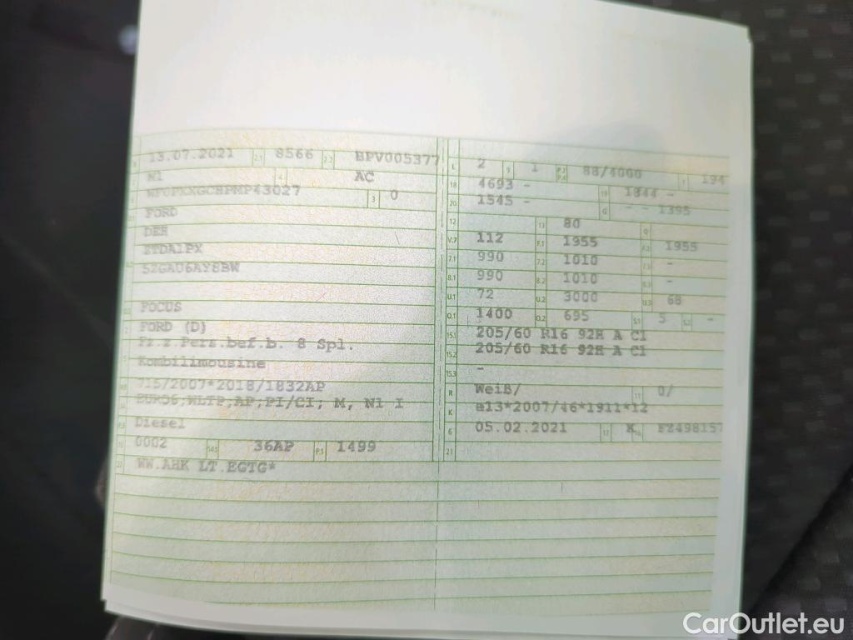 13.07.2021 8566 BPV005377
M1 AC
0
FORD
DEH
FOCUS
FORD (D)
Fz.z.Pers.bef.b. 8 Spl.
Kombilimousine
715/2007*2018/1832AP
EURO6;WLTP,AP;PI/CI; M, N1 I
Diesel
0002 36AP 1499
WW.AHK LT.EGTG*
2 1 88/4000 194
4693 - 1844 -
1545 - - - 1395
80
112 1955 1955
990 1010 -
990 1010 -
72 3000 68
1400 695 5 -
205/60 R16 92H A C1
205/60 R16 92H A C1
-
Weiß/ 0/
e13*2007/46*1911*12
05.02.2021 K
CarOutlet.eu